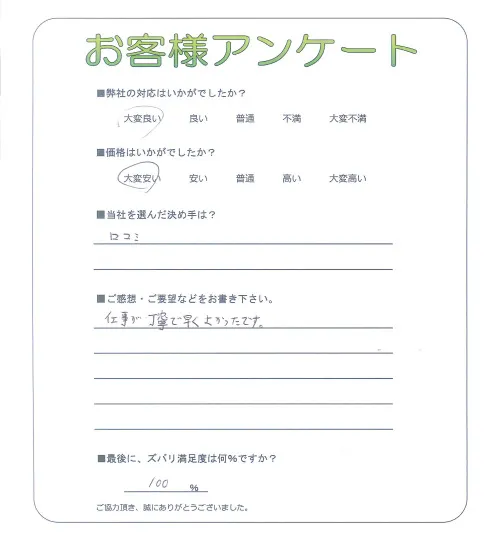 お客様アンケート
■弊社の対応はいかがでしたか？
大変良い 良い 普通 不満 大変不満
■価格はいかがでしたか？
大変安い 安い 普通 高い 大変高い
■当社を選んだ決め手は？
口コミ
■ご感想・ご要望などをお書き下さい。
仕事が丁寧で早くよかったです。
■最後に、ズバリ満足度は何%ですか？
100 %
ご協力頂き、誠にありがとうございました。